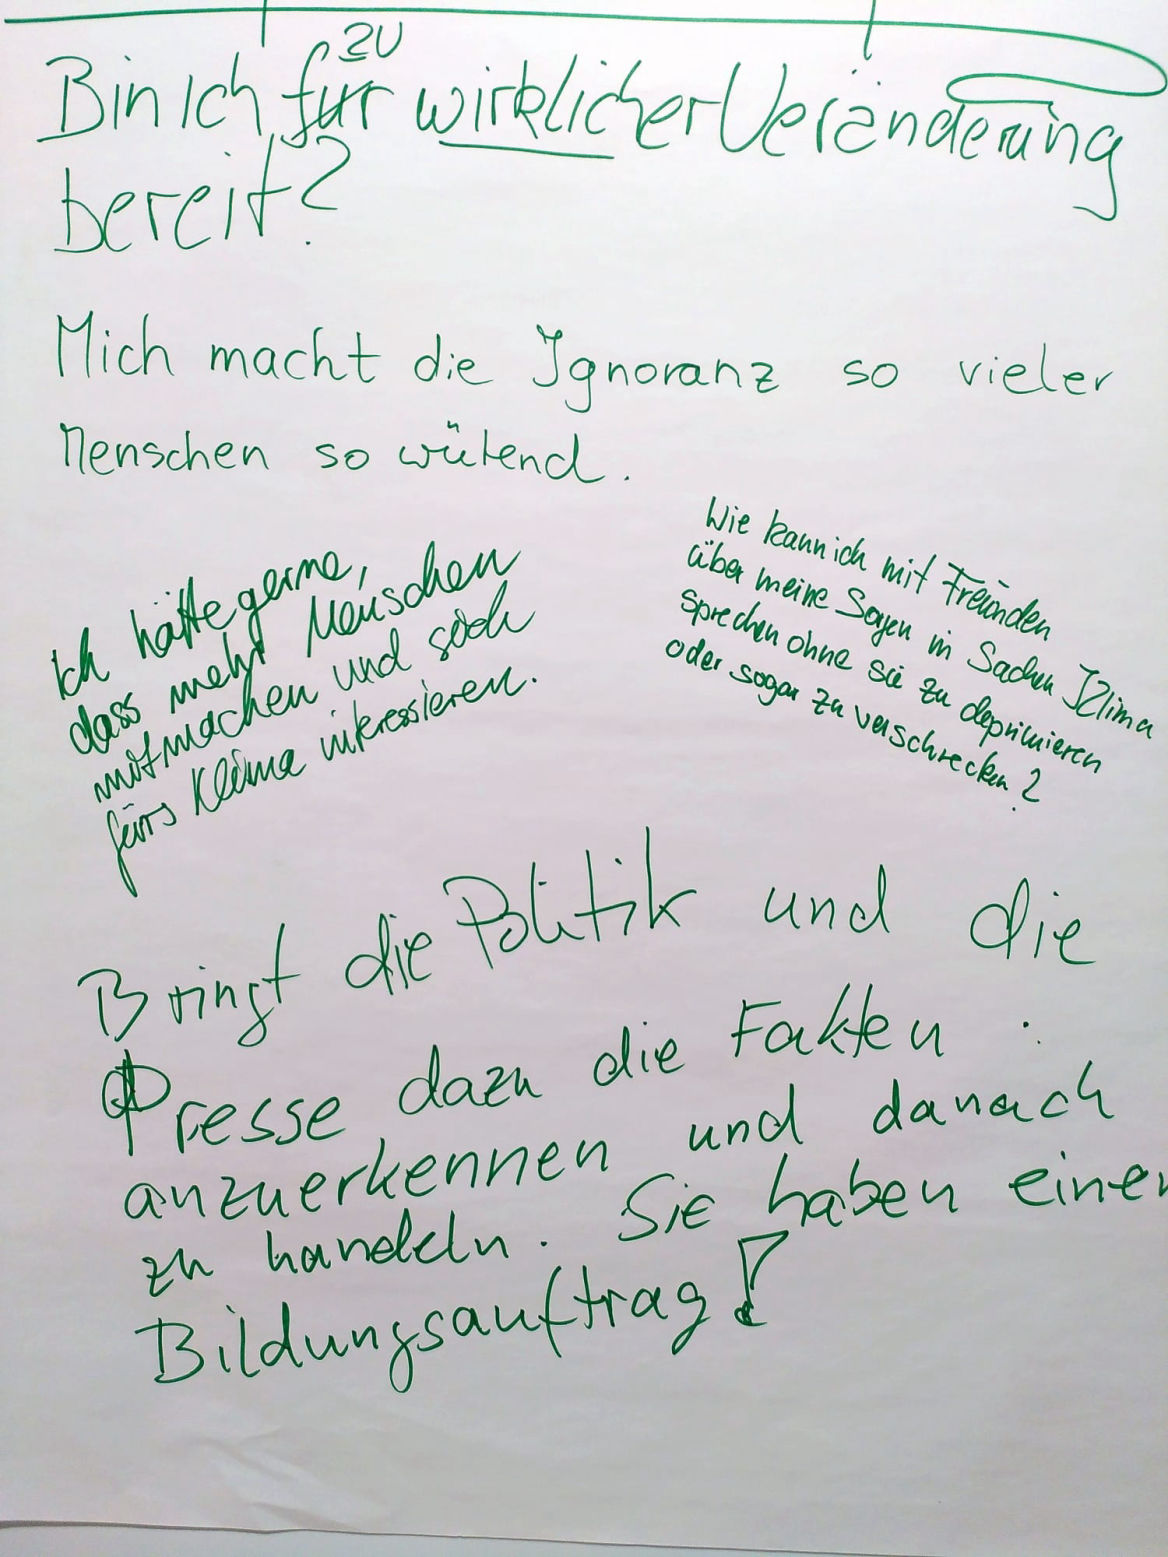 Bin ich für zu wirklicher Veränderung
bereit?
Mich macht die Ignoranz so vieler
Menschen so wütend.
Ich hätte gerne,
dass mehr Menschen
mitmachen und sich
fürs Klima interessieren.
Wie kann ich mit Freunden
über meine Sorgen in Sachen Klima
sprechen ohne sie zu deprimieren
oder sogar zu verschrecken?
Bringt die Politik und die
Presse dazu die Fakten
anzuerkennen und danach
zu handeln. Sie haben einen
Bildungsauftrag!